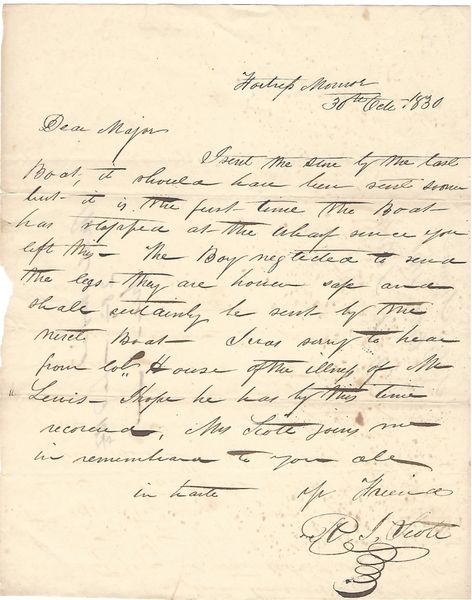 Fortress Monroe
30th Octr. 1830
Dear Major
I sent the by the last
Boat, it should have been sent sooner
but it is the first time the Boat
has stopped at the wharf since you
left this - The Boy neglected to send
the legs - they are however safe and
shall certainly be sent by the
next Boat - I was sorry to hear
from Col. House of the illness of Mr
Lewis - I hope he has by this time
recovered, Mrs Scott joins me
in remembrance to you all
in haste yr Friend
R. J. Scott